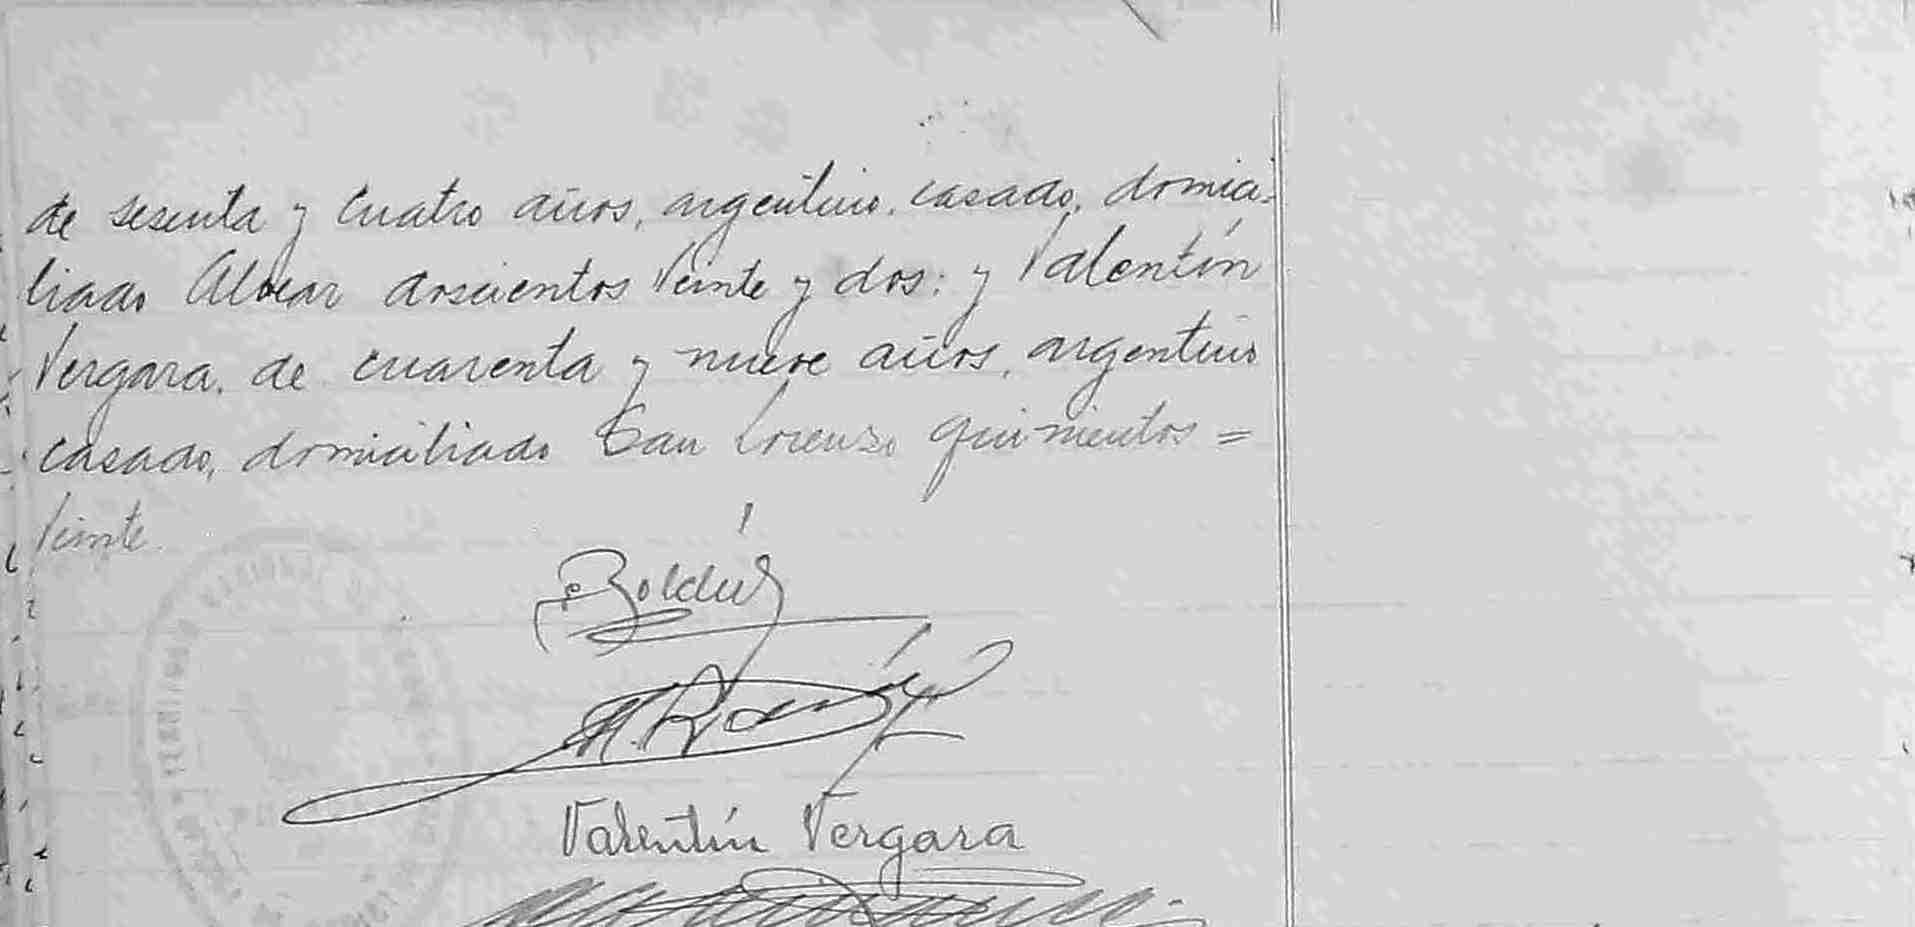 de sesenta y cuatro años, argentino, casado, domici-
liado Alvear doscientos veinte y dos: y Valentín
Vergara, de cuarenta y nueve años, argentino
casado, domiciliado San Lorenzo quinientos =
veinte.
Valentín Vergara